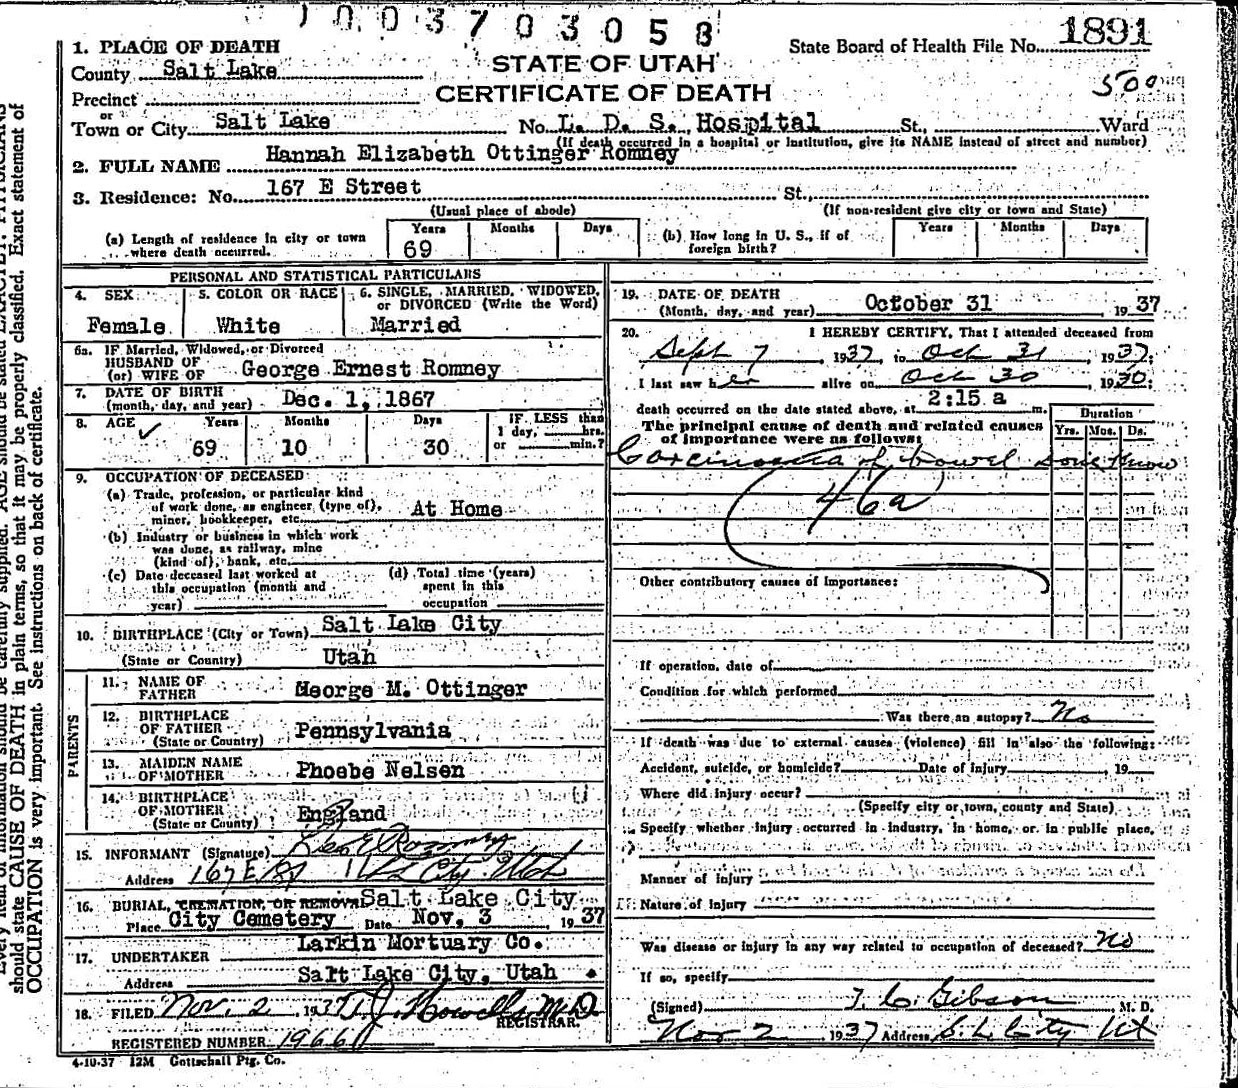 1003703058
1. PLACE OF DEATH
State Board of Health File No. 1891
County Salt Lake
STATE OF UTAH
500
Precinct
CERTIFICATE OF DEATH
or
Town or City Salt Lake No. L. D. S. Hospital St., Ward
(If death occurred in a hospital or institution, give its NAME instead of street and number)
2. FULL NAME Hannah Elizabeth Ottinger Romney
3. Residence: No. 167 E Street St.,
(Usual place of abode) (If non-resident give city or town and State)
(a) Length of residence in city or town where death occurred. Years 69 Months Days
(b) How long in U. S., if of foreign birth? Years Months Days
PERSONAL AND STATISTICAL PARTICULARS
4. SEX Female
5. COLOR OR RACE White
6. SINGLE, MARRIED, WIDOWED, or DIVORCED (Write the Word) Married
6a. IF Married, Widowed, or Divorced
HUSBAND OF
(or) WIFE OF George Ernest Romney
7. DATE OF BIRTH
(month, day, and year) Dec. 1, 1867
8. AGE Years 69 Months 10 Days 30
IF LESS than
1 day, hrs.
or min.?
9. OCCUPATION OF DECEASED
(a) Trade, profession, or particular kind
of work done, as engineer (type of),
miner, bookkeeper, etc. At Home
(b) Industry or business in which work
was done, as railway, mine
(kind of), bank, etc.
(c) Date deceased last worked at
this occupation (month and
year)
(d) Total time (years)
spent in this
occupation
10. BIRTHPLACE (City or Town) Salt Lake City
(State or Country) Utah
PARENTS
11. NAME OF
FATHER George M. Ottinger
12. BIRTHPLACE
OF FATHER
(State or Country) Pennsylvania
13. MAIDEN NAME
OF MOTHER Phoebe Nelsen
14. BIRTHPLACE
OF MOTHER
(State or County) England
15. INFORMANT (Signature) Geo E Romney
Address 167 E St City Utah
16. BURIAL, CREMATION, OR REMOVAL Salt Lake City
Place City Cemetery Date Nov. 3 1937
17. UNDERTAKER Larkin Mortuary Co.
Address Salt Lake City, Utah
18. FILED Nov. 2 1937 T. J. Howells M.D.
REGISTRAR.
REGISTERED NUMBER 1966
4-10-37 12M Gottschall Ptg. Co.
19. DATE OF DEATH
(Month, day, and year) October 31 1937
20. I HEREBY CERTIFY, That I attended deceased from
Sept 7, 1937, to Oct 31 1937;
I last saw her alive on Oct 30 1930;
death occurred on the date stated above, at 2:15 a m.
The principal cause of death and related causes
of importance were as follows:
Duration
Yrs. Mos. Ds.
Carcinoma of bowel Dont Know
46a
Other contributory causes of importance:
If operation, date of
Condition for which performed
Was there an autopsy? No
If death was due to external causes (violence) fill in also the following:
Accident, suicide, or homicide? Date of injury, 19
Where did injury occur?
(Specify city or town, county and State)
Specify whether injury occurred in industry, in home, or in public place,
Manner of injury
Nature of injury
Was disease or injury in any way related to occupation of deceased? No
If so, specify
(Signed) T. C. Gibson M. D.
Nov 2 1937 Address S. L. City Ut
should state CAUSE OF DEATH in plain terms, so that it may be properly classified. Exact statement of
OCCUPATION is very important. See instructions on back of certificate.